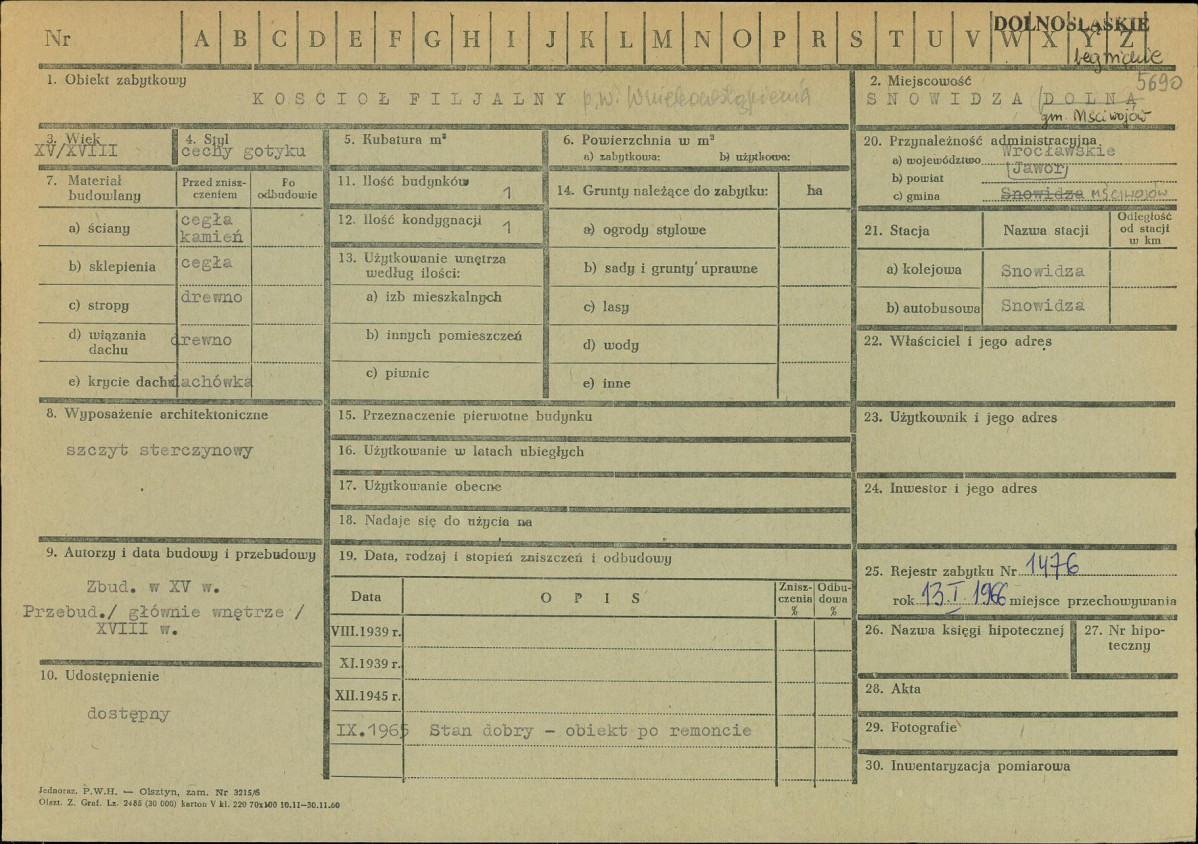 DOLNOŚLĄSKIE
legnickie
Nr A B C D E F G H I J K L M N O P R S T U V W X Y Z
5690
1. Obiekt zabytkowy
KOSCIOŁ FILJALNY p.w. Wniebowstąpienia
2. Miejscowość
SNOWIDZA /DOLNĄ
gm. Mściwojów
3. Wiek
XV/XVIII
4. Styl
cechy gotyku
5. Kubatura m³
6. Powierzchnia w m²
a) zabytkowa: b) użytkowa:
20. Przynależność administracyjna
a) województwo Wrocławskie
b) powiat Jawor
c) gmina Snowidza MŚCIWOJÓW
7. Materiał budowlany
Przed zniszczeniem
Po odbudowie
a) ściany cegła kamień
b) sklepienia cegła
c) stropy drewno
d) wiązania dachu drewno
e) krycie dachu dachówka
11. Ilość budynków 1
12. Ilość kondygnacji 1
13. Użytkowanie wnętrza według ilości:
a) izb mieszkalnych
b) innych pomieszczeń
c) piwnic
14. Grunty należące do zabytku: ha
a) ogrody stylowe
b) sady i grunty uprawne
c) lasy
d) wody
e) inne
21. Stacja Nazwa stacji Odległość od stacji w km
a) kolejowa Snowidza
b) autobusowa Snowidza
22. Właściciel i jego adres
8. Wyposażenie architektoniczne
szczyt sterczynowy
15. Przeznaczenie pierwotne budynku
16. Użytkowanie w latach ubiegłych
17. Użytkowanie obecne
18. Nadaje się do użycia na
23. Użytkownik i jego adres
24. Inwestor i jego adres
9. Autorzy i data budowy i przebudowy
Zbud. w XV w.
Przebud./ głównie wnętrze /
XVIII w.
19. Data, rodzaj i stopień zniszczeń i odbudowy
Data OPIS Zniszczenia % Odbudowa %
VIII.1939 r.
XI.1939 r.
XII.1945 r.
IX.1965 Stan dobry - obiekt po remoncie
25. Rejestr zabytku Nr 1476
rok 13.I.1966 miejsce przechowywania
26. Nazwa księgi hipotecznej
27. Nr hipoteczny
10. Udostępnienie
dostępny
28. Akta
29. Fotografie
30. Inwentaryzacja pomiarowa
Jednoraz. P.W.H. — Olsztyn, zam. Nr 3215/S
Olszt. Z. Graf. Lz. 2485 (30 000) karton V kl. 220 70x100 10.11—30.11.60